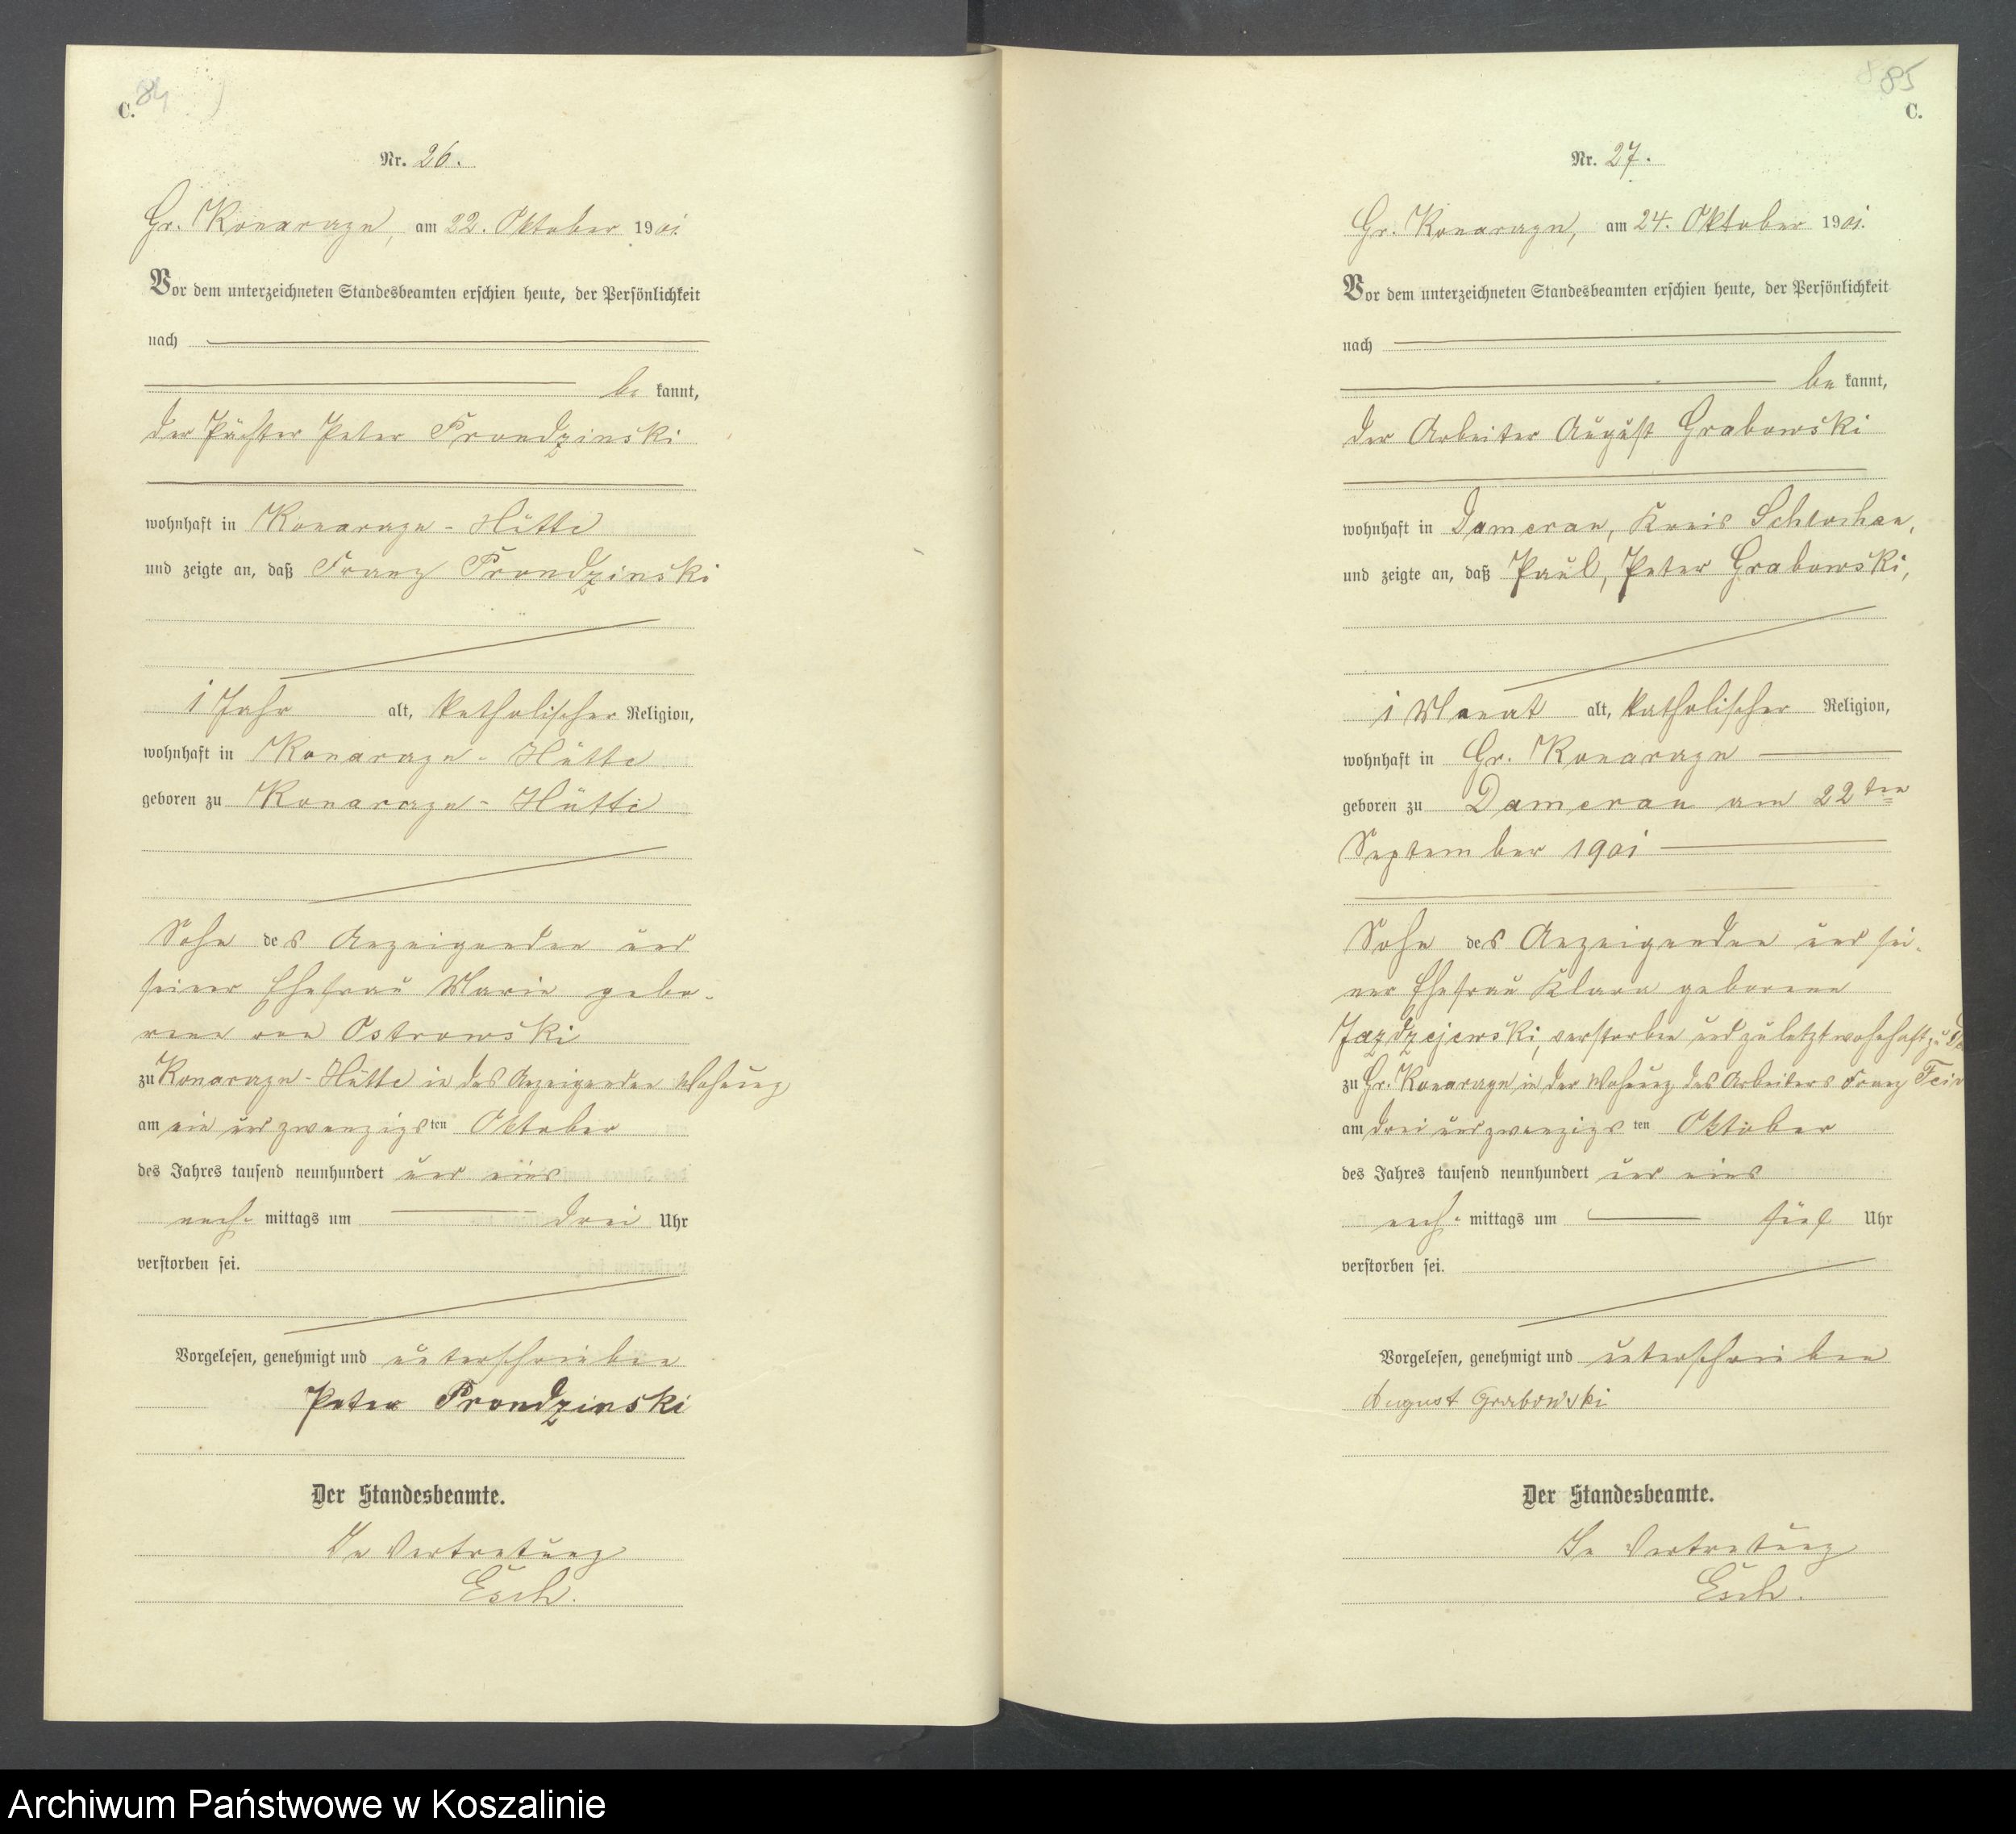 84
C.
Nr. 26.
Gr. Konarzyn, am 22. Oktober 1901.
Vor dem unterzeichneten Standesbeamten erschien heute, der Persönlichkeit
nach
be kannt,
der Pächter Peter Prondzinski
wohnhaft in Konarzyn - Hütte
und zeigte an, daß Franz Prondzinski
1 Jahr alt, katholischer Religion,
wohnhaft in Konarzyn - Hütte
geboren zu Konarzyn - Hütte
Sohn des Anzeigenden und
seiner Ehefrau Marie gebo-
rene von Ostrowski
zu Konarzyn - Hütte in des Anzeigenden Wohnung
am ein und zwanzigsten Oktober
des Jahres tausend neunhundert und eins
nach- mittags um drei Uhr
verstorben sei.
Vorgelesen, genehmigt und unterschrieben
Peter Prondzinski
Der Standesbeamte.
In Vertretung
Esch.
85
C.
Nr. 27.
Gr. Konarzyn, am 24. Oktober 1901.
Vor dem unterzeichneten Standesbeamten erschien heute, der Persönlichkeit
nach
be kannt,
der Arbeiter August Grabowski
wohnhaft in Dameran, Kreis Schlochau,
und zeigte an, daß Paul, Peter Grabowski,
1 Monat alt, katholischer Religion,
wohnhaft in Gr. Konarzyn
geboren zu Dameran am 22ten
September 1901
Sohn des Anzeigenden und sei-
ner Ehefrau Klara geborene
Jazdzejewski, verstorben und zuletzt wohnhaft zu
zu Gr. Konarzyn in der Wohnung des Arbeiters Franz
am drei und zwanzigsten Oktober
des Jahres tausend neunhundert und eins
nach- mittags um fünf Uhr
verstorben sei.
Vorgelesen, genehmigt und unterschrieben
August Grabowski
Der Standesbeamte.
In Vertretung
Esch.
Archiwum Państwowe w Koszalinie